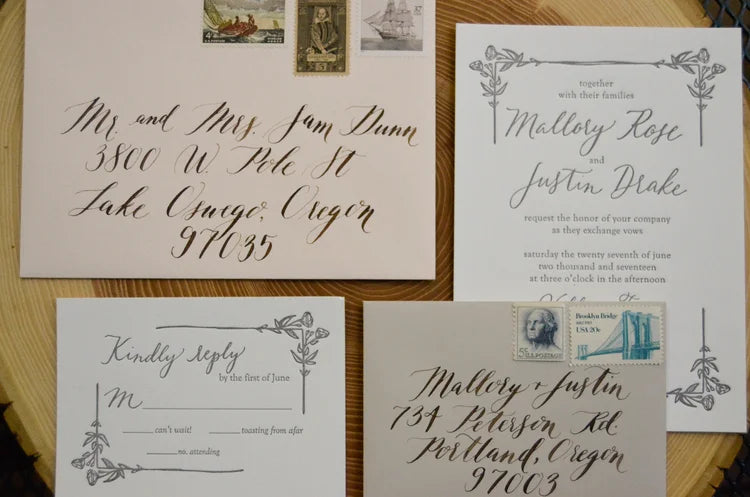 4c U.S. POSTAGE
5c
37
Mr. and Mrs. Sam Dunn
3800 W. Pole St
Lake Osuego, Oregon
97035
together
with their families
Mallory Rose
and
Justin Drake
request the honor of your company
as they exchange vows
saturday the twenty seventh of june
two thousand and seventeen
at three o'clock in the afternoon
Kindly reply
by the first of June
M
can't wait!
toasting from afar
no. attending
5c U.S. POSTAGE
Brooklyn Bridge
USA 20c
Mallory + Justin
734 Peterson Rd.
Portland, Oregon
97003